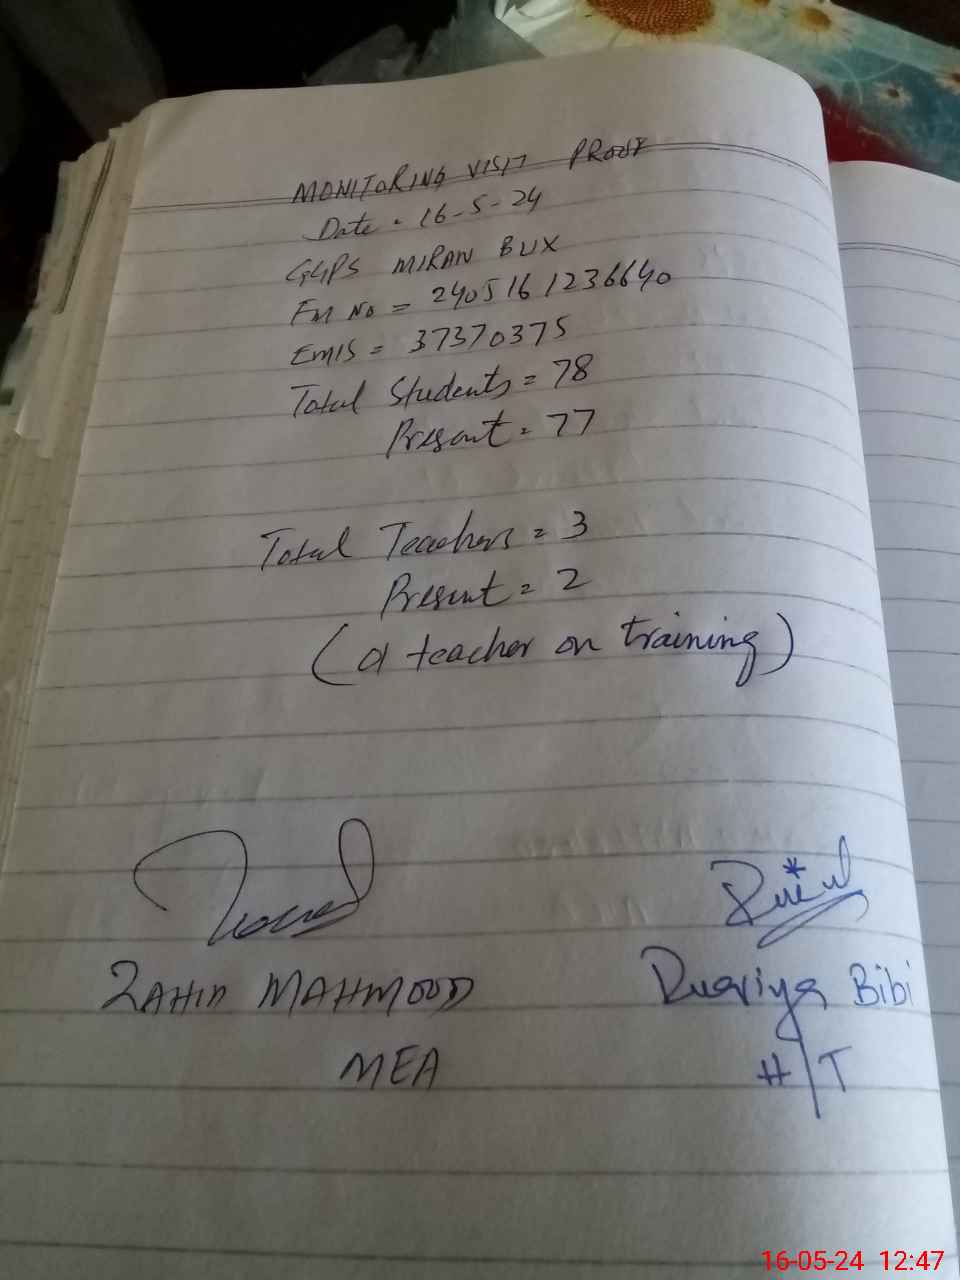 MONITORING VISIT PROOF
Date = 16-5-24
GGPS MIRAN BUX
EM No = 2405161236640
EMIS = 37370375
Total Students = 78
Present = 77
Total Teachers = 3
Present = 2
(a teacher on training)
ZAHID MAHMOOD
Bibi
MEA
H/T
16-05-24 12:47